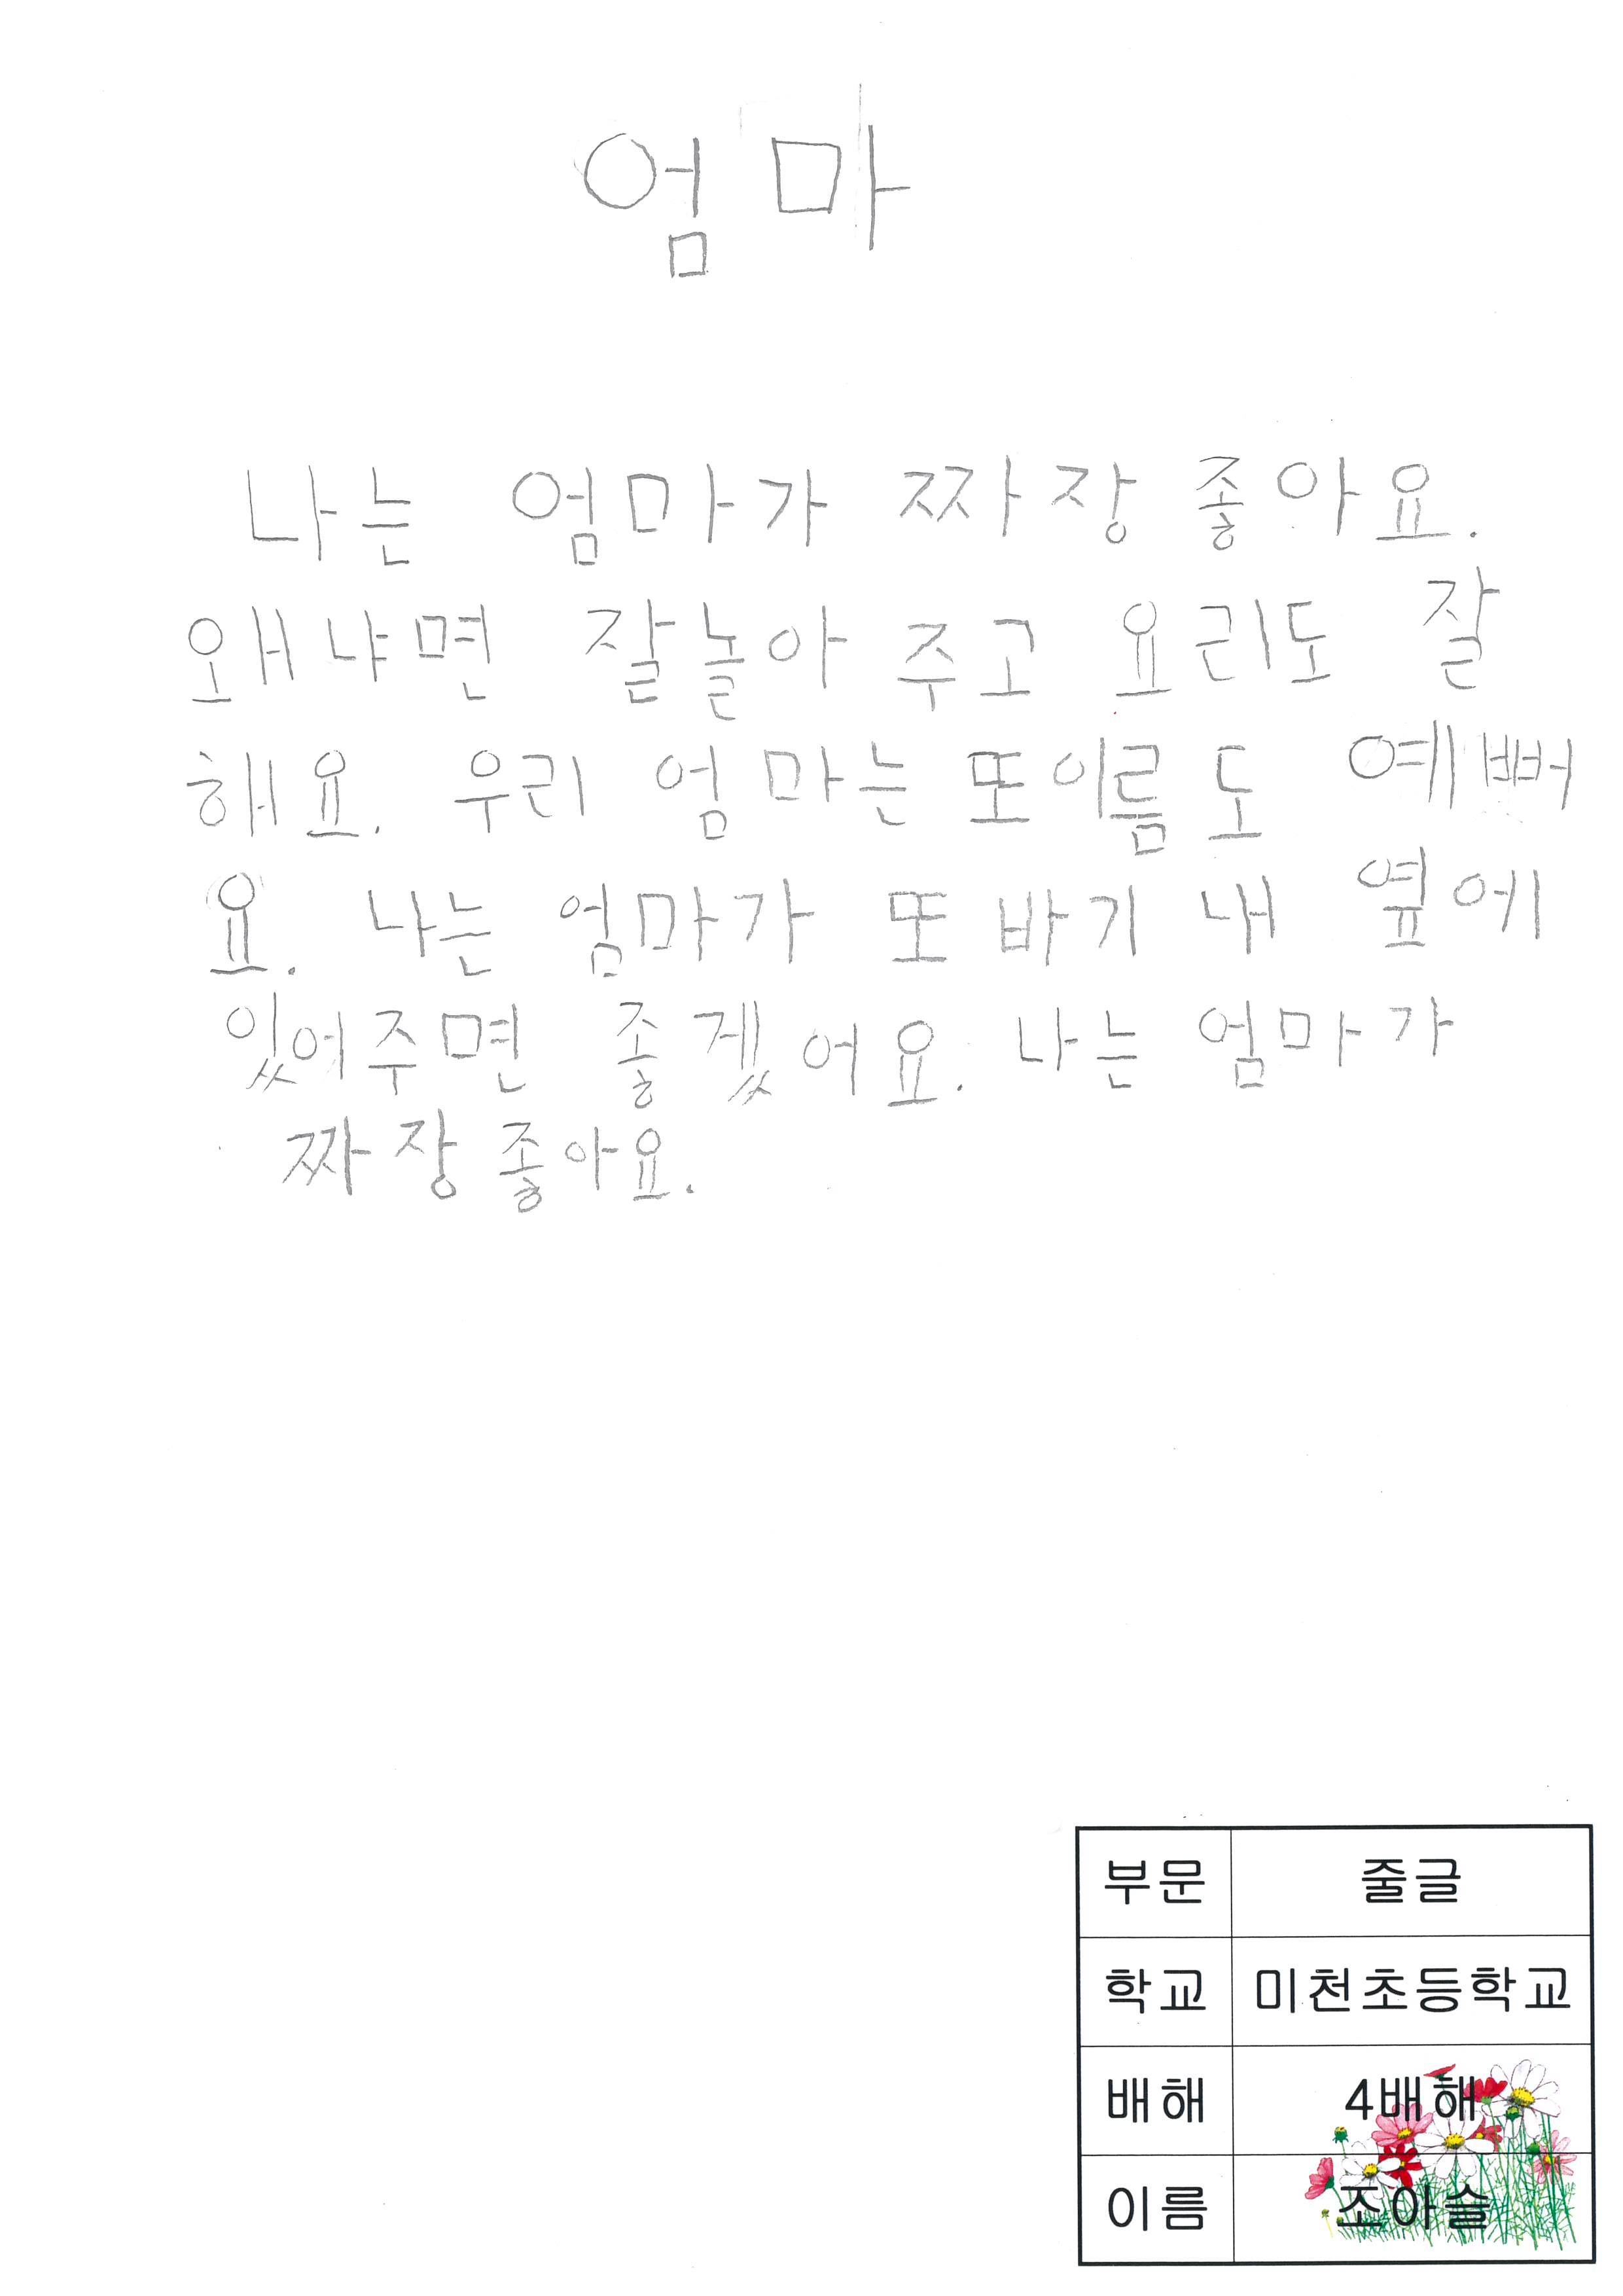 엄마
나는 엄마가 짜장 좋아요.
왜냐면 잘놀아 주고 요리도 잘
해요. 우리 엄마는 또이름도 예뻐
요. 나는 엄마가 또바기 내 옆에
있어주면 좋겠어요. 나는 엄마가
짜장좋아요.
부문 줄글
학교 미천초등학교
배해 4배해
이름 조아슬